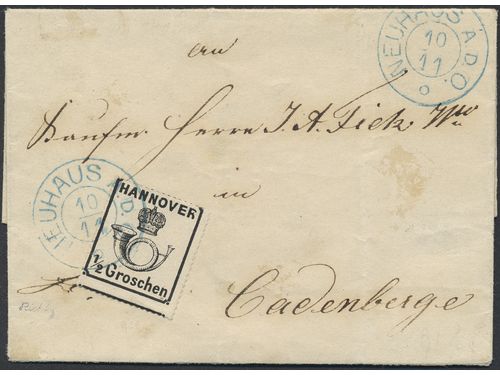 NEUHAUS A.D.O.
10
11
an
Kaufm. Herrn J. A. Fick, Wwe
in
NEUHAUS A.D.O.
10
11
HANNOVER
1/2 Groschen
Cadenberge